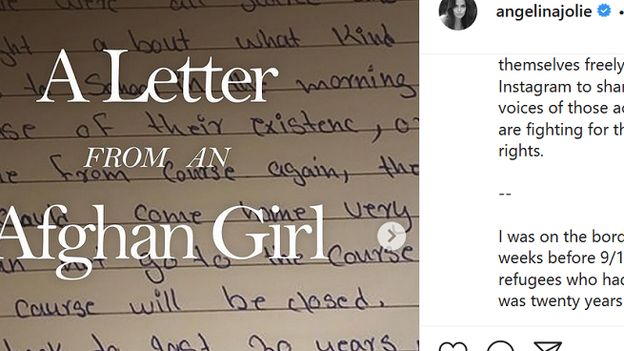 a bout what kind
to School in the morning
A Letter
of their existenc,
FROM AN
from course again,
come home very
Afghan Girl
not go to the course
course will be closed.
to last 20 years
angelinajolie
themselves freely
Instagram to shar
voices of those ac
are fighting for th
rights.
--
I was on the bord
weeks before 9/1
refugees who hac
was twenty years